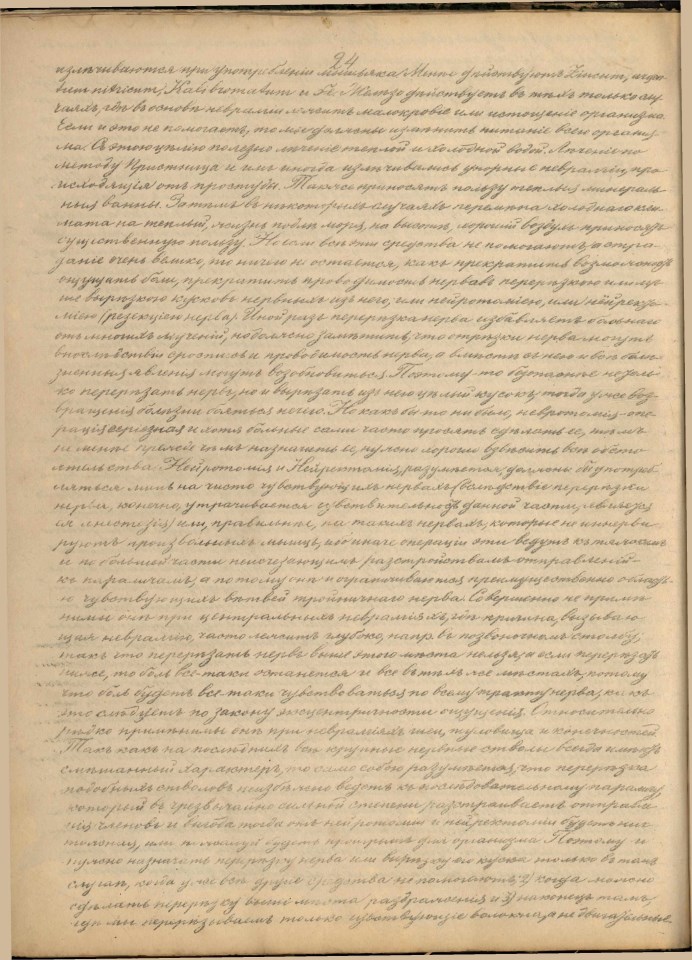 24
излѣчиваются при употребленіи мышьяка. Менѣе дѣйствуютъ Zincum,
bum nitricum, Kali bromatum и др. Желѣзо дѣйствуетъ въ тѣхъ только слу-
чаяхъ, гдѣ въ основѣ невралгіи лежитъ малокровіе или истощеніе организма.
Если и это не помогаетъ, то мы должны измѣнить питаніе всего организ-
ма. Съ этою цѣлію полезно леченіе теплой и холодной водой. Леченіе по
методу Присница и имъ иногда излѣчивались упорные невралгіи, про-
исходящія отъ простуды. Также приносятъ пользу теплыя минераль-
ныя ванны. Затѣмъ въ нѣкоторыхъ случаяхъ перемѣна холоднаго кли-
мата на теплый, жизнь подлѣ моря, на высотѣ, хорошій воздухъ приносятъ
существенную пользу. Но если всѣ эти средства не помогаютъ, а стра-
даніе очень велико, то ничего не остается, какъ прекратить возможность
ощущать боли, прекратить проводимость нервовъ перерѣзкою или луч-
ше вырѣзкою кусковъ нервныхъ изъ него, или нейротоміею, или нейректо-
міею (резекціею нерва). Иной разъ перерѣзка нерва избавляетъ больнаго
отъ многихъ мученій, но должно замѣтить, что отрѣзки нерва могутъ
впослѣдствіи сростись и проводимость нерва, а вмѣстѣ съ нею и всѣ болѣз-
зненныя явленія могутъ возобновиться. Поэтому-то безопаснѣе не толь-
ко перерѣзать нервъ, но и вырѣзать изъ него цѣлый кусокъ; тогда уже воз-
вращенія болѣзни бояться нечего. Но какъ бы то ни было, невротомія - опе-
рація серіозная и хотя больные сами часто просятъ сдѣлать ее, тѣмъ
не менѣе прежде чѣмъ назначить ее, нужно хорошо взвѣсить всѣ обсто-
ятельства. Нейротомія и Нейректомія, разумѣется, должны быть употреб-
ляться лишь на чисто чувствующихъ нервахъ (вслѣдствіе перерѣзки
нерва, конечно, утрачивается чувствительность данной части, является
анестезія) или, правильнѣе, на такихъ нервахъ, которые не иннерви-
руютъ произвольныхъ мышцъ, ибо иначе операціи эти ведутъ къ тяжкимъ
и по большей части неисчезающимъ разстройствамъ отправленій -
къ параличамъ, а потому онѣ и ограничиваются преимущественно областью
чувствующихъ вѣтвей тройничнаго нерва. Совершенно не примѣ-
нимы онѣ при центральныхъ невралгіяхъ, гдѣ причина, вызываю-
щая невралгію, часто лежитъ глубоко, напр. въ позвоночномъ столбѣ,
такъ что перерѣзать нервъ выше этого мѣста нельзя, а если перерѣзать
ниже, то боль все-таки останется и все въ тѣхъ-же мѣстахъ, потому
что боль будетъ все таки чувствоваться по всему тракту нерва, какъ
это слѣдуетъ по закону эксцентричности ощущенія. Относительно
рѣдко примѣнимы онѣ при невралгіяхъ шеи, туловища и конечностей.
Такъ какъ на послѣднихъ всѣ крупные нервные стволы всегда имѣютъ
смѣшанный характеръ, то само собою разумѣется, что перерѣзка
подобныхъ стволовъ неизбѣжно ведетъ къ послѣдовательному параличу,
который въ чрезвычайно сильной степени разстраиваетъ отправле-
нія членовъ и выгода тогда отъ нейротоміи и нейректоміи будетъ нич-
тожная, или и пользы будетъ проигрышъ для организма. Поэтому и
нужно назначать перерѣзку нерва или вырѣзку его куска только въ томъ
случаѣ, когда уже всѣ другія средства не помогаютъ, 2) когда можно
сдѣлать перерѣзку выше мѣста раздраженія и 3) наконецъ тамъ,
гдѣ мы перерѣзываемъ только чувствующіе волокна, а не двигательные